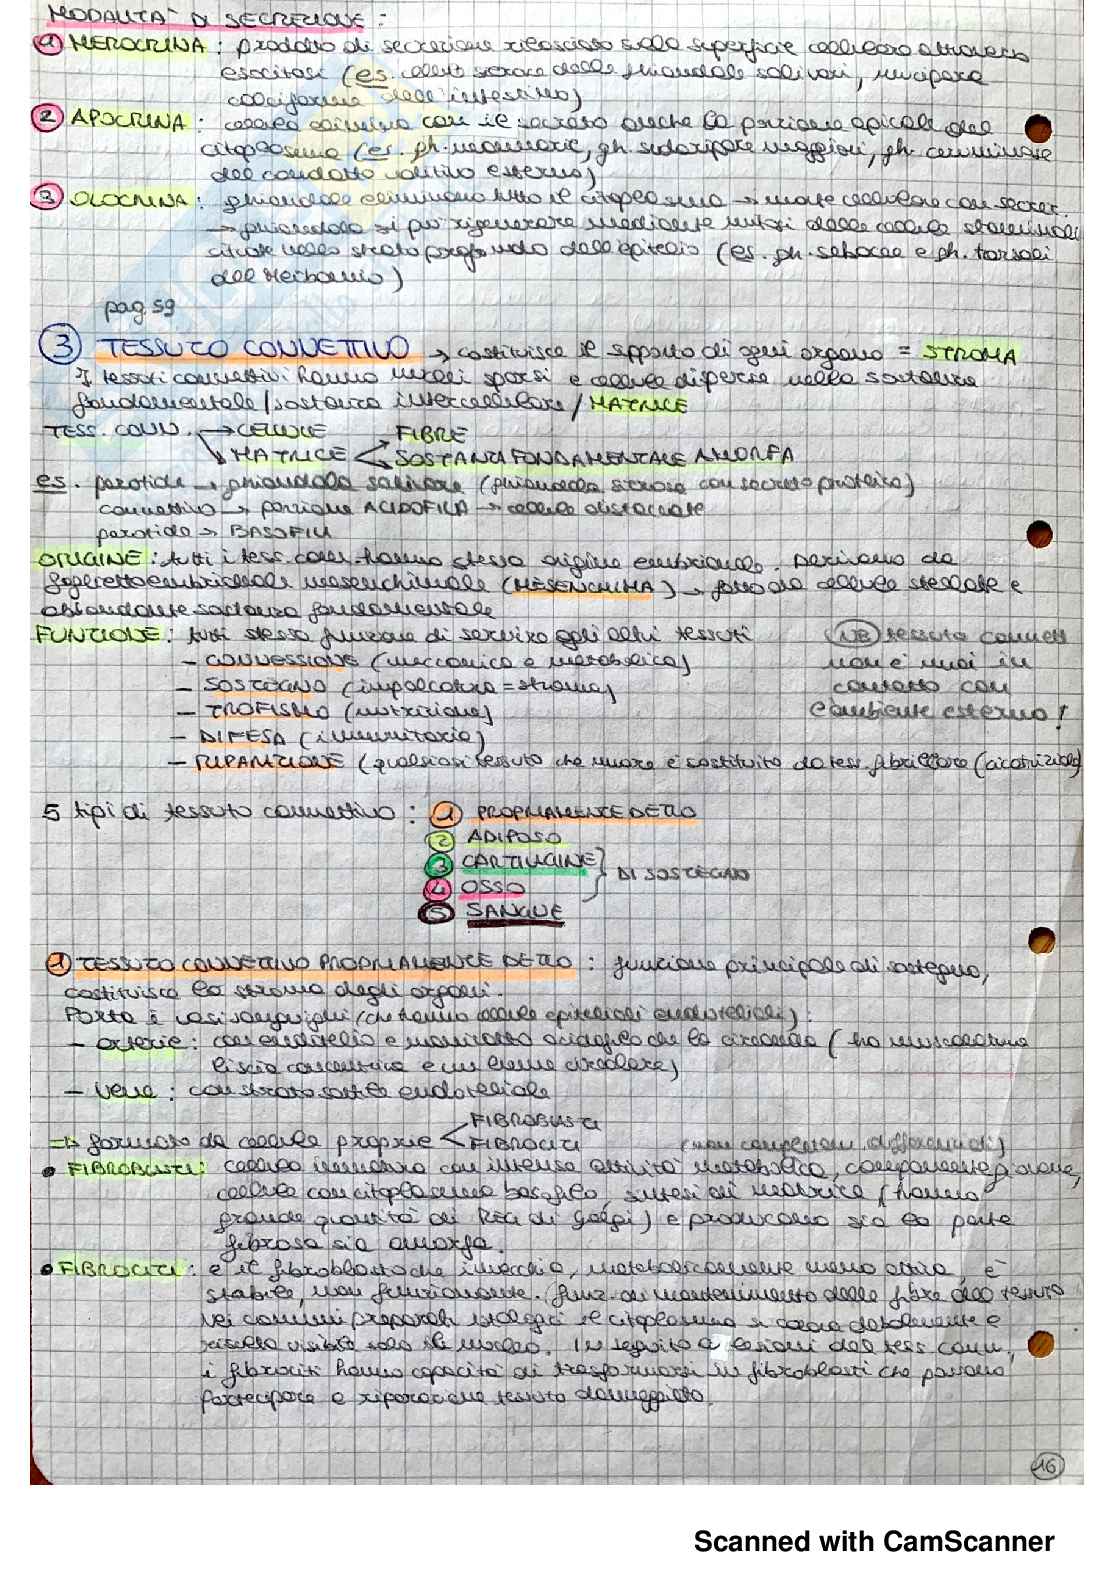 MODALITA' DI SECREZIONE:
1 MEROCRINA: prodotto di secrezione rilasciato sulla superficie cellulare attraverso
esocitosi (es. cellule sierose delle ghiandole salivari, mucipare
caliciformi dell'intestino)
2 APOCRINA: cellula elimina con il secreto anche la porzione apicale del
citoplasma (es. gh. mammarie, gh. sudoripare maggiori, gh. ceruminose
del condotto uditivo esterno)
3 OLOCRINA: ghiandole eliminano tutto il citoplasma → morte cellulare con secrez.
→ ghiandola si può rigenerare mediante mitosi delle cellule staminali
situate nello strato profondo dell'epitelio (es. gh. sebacee e gh. tarsali
del Meibomio)
pag 59
3 TESSUTO CONNETTIVO → costituisce il supporto di ogni organo = STROMA
I tessuti connettivi hanno nuclei sparsi e cellule disperse nella sostanza
fondamentale/sostanza intercellulare/MATRICE
TESS. CONN. → CELLULE FIBRE
MATRICE SOSTANZA FONDAMENTALE AMORFA
es. parotide → ghiandola salivare (ghiandola sierosa con secreto proteico)
connettivo → porzione ACIDOFILA → cellule distaccate
parotide → BASOFILA
ORIGINE: tutti i tess. conn. hanno stessa origine embrionale. Derivano da
foglietto embrionale mesenchimale (MESENCHIMA) → fatto da cellule stellate e
abbondante sostanza fondamentale
FUNZIONE: tutti stessa funzione di servire gli altri tessuti
- CONNESSIONE (meccanica e metabolica)
- SOSTEGNO (impalcatura = stroma)
- TROFISMO (nutrizione)
- DIFESA (immunitaria)
- RIPARAZIONE (qualsiasi tessuto che muore è sostituito da tess. fibrillare (cicatriziale)
NB tessuto connett
non è mai in
contatto con
l'ambiente esterno!
5 tipi di tessuto connettivo: 1 PROPRIAMENTE DETTO
2 ADIPOSO
3 CARTILAGINE
4 OSSO
DI SOSTEGNO
5 SANGUE
1 TESSUTO CONNETTIVO PROPRIAMENTE DETTO: funzione principale di sostegno,
costituisce lo stroma degli organi.
Porta i vasi sanguigni (che hanno cellule epiteliali endoteliali):
- arterie: con endotelio e che la circonda (ha muscolatura
liscia concentrica e un lume circolare)
- vene: con strato sottile endoteliale
⇒ formato da cellule proprie FIBROBLASTI
FIBROCITI
• FIBROBLASTI: cellula immatura con intensa attività metabolica, giovane,
cellula con citoplasma basofilo, sintesi di matrice (hanno
grande quantità di RER di Golgi) e producono sia la parte
fibrosa sia amorfa.
• FIBROCITI: è il fibroblasto che invecchia, metabolicamente meno attiva, è
stabile, non funzionante. (funz. di mantenimento delle fibre del tessuto
Nei comuni preparati istologici il citoplasma si colora debolmente e
risulta visibile solo il nucleo. In seguito a lesioni del tess conn,
i fibrociti hanno capacità di trasformarsi in fibroblasti che possono
partecipare a riparazione tessuto danneggiato.
16
Scanned with CamScanner